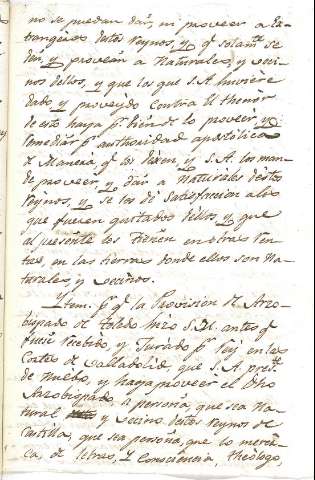 no se puedan dár, ni proveer a Es-
trangeros destos Reynos, y q̃ solam.te se
dén, y provean a Naturales, y veci-
nos dellos, y que los que S. A. huviere
dado, y proveydo contra el thenor
de esto haya p.r bien de lo proveér, y
remediár p.r authoridad apostólica
de Manera q̃ los dexen, y S. A. los man-
de proveér, y dár a Naturales destos
Reynos, y se les dé Satisfacion a los
que fueren quitados dellos, y que
al presente los tienen en otras Ren-
tas, en las tierras donde ellos son Na-
turales, y vecinos.
Ytem. p.r q̃ la Provision de Arzo-
bispado de Toledo hizo S. M. antes q̃
fuese recibido, y Jurado p.r Rey en las
Cortes de Valladolid, que S. A. pres.te
de Nuebo, y haga proveer el dho
Arzobispado a persona, que sea Na-
tural y vecino destos Reynos de
Castilla, que sea persona, que lo meréz-
ca, de letras, y Consciencia, theólogo,